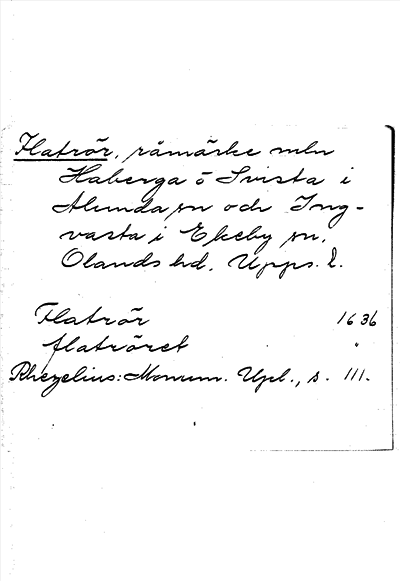 Flatrör, råmärke mln
Haberga o Svista i
Alunda sn och Ing-
vasta i Ekeby sn,
Olands hd, Upps. l.
Flatrör 1636
flatröret "
Rhezelius: Monum. Upl., s. 111.